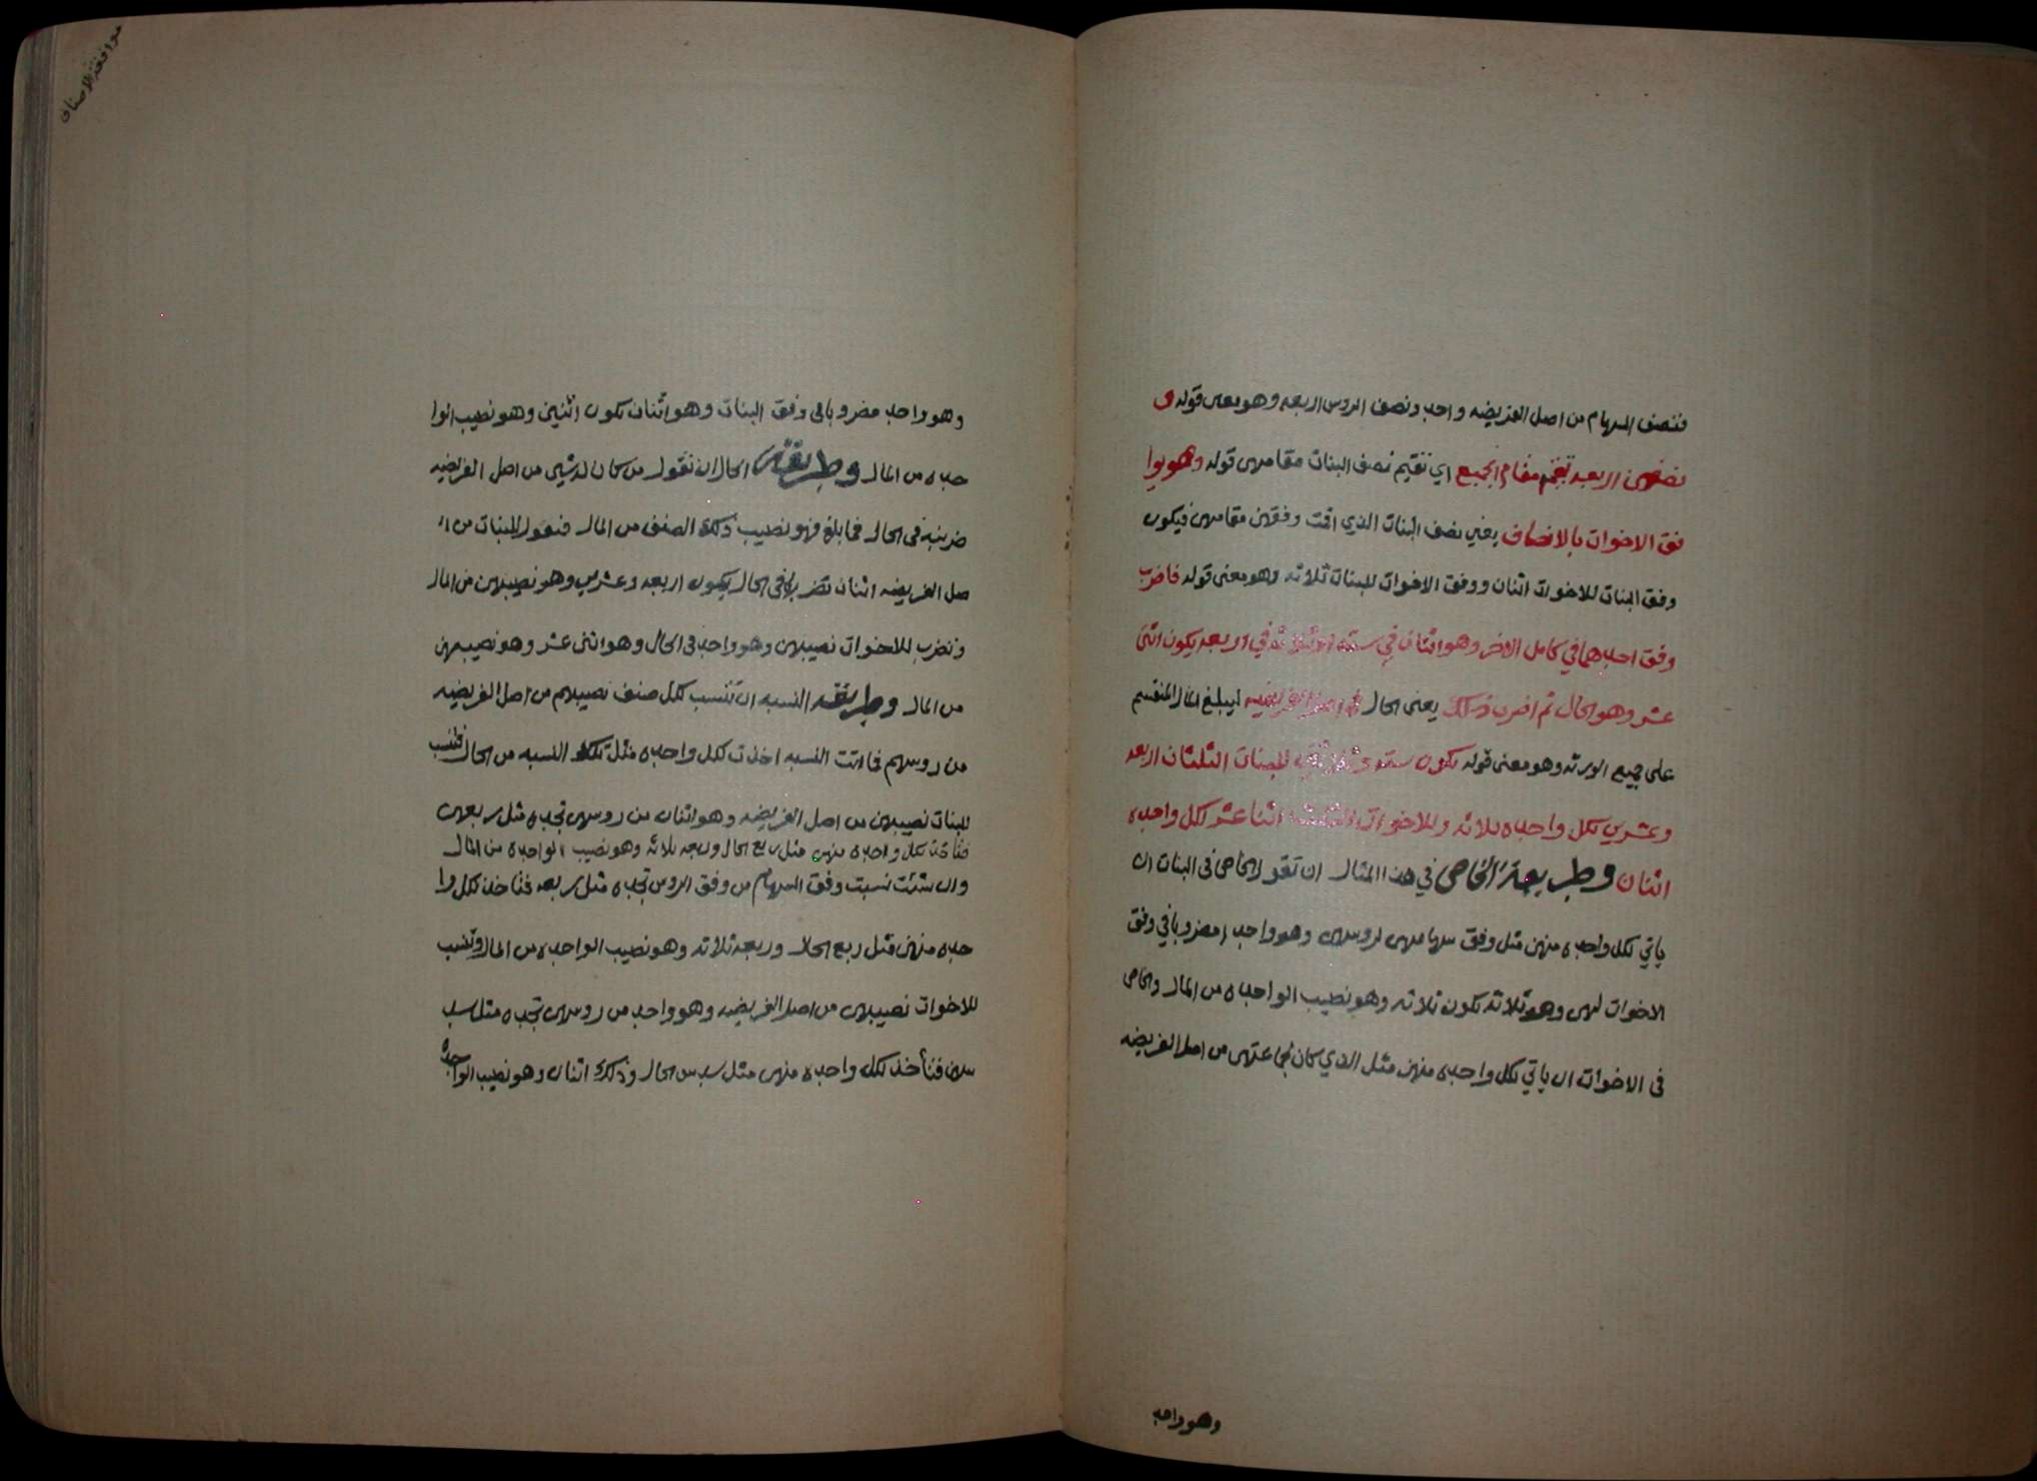 فنصف السهام من اصل الفريضه واحد ونصف الروس اربعه وهو معنى قوله و
نصفهن اربعه تقم مقام الجميع اي نقيم نصف البنات مقامهن قوله وهو يوا
فق الاخوات بالانصاف يعني نصف البنات الذي اقت وفقهن مقامهن فيكون
وفق البنات للاخوات اثنان ووفق الاخوات للبنات ثلاثه وهو معنى قوله فاضرب
وفق احدهما في كامل الاخر وهو اثنان في سته او ثلاثه في اربعه يكون اثنى
عشر وهو الحال ثم اضرب ذلك يعنى الحال في اصل الفريضه ليبلغ المال المنقسم
على جميع الورثه وهو معنى قوله تكون سته وثلاثين للبنات الثلثان اربعه
وعشرين لكل واحده ثلاثه وللاخوات الثلث اثنا عشر لكل واحده
اثنان وطريقة الخاص في هذا المثال ان تقول الخاص فى البنات ان
ياتي لكل واحده منهن مثل وفق سهامهن لروسهن وهو واحد مضروبا في وفق
الاخوات لهن وهو ثلاثه تكون ثلاثه وهو نصيب الواحده من المال والخاص
فى الاخوات ان ياتي لكل واحده منهن مثل الذي كان لجماعتهن من اصل الفريضه
وهو واحد
موافقة الاصناف
وهو واحد مضروبا فى وفق البنات وهو اثنان تكون اثنين وهو نصيب الوا
حده من المال وطريقة الحال ان تقول من كان له شيى من اصل الفريضه
ضربته فى الحال فما بلغ فهو نصيب ذلك الصنف من المال فنقول للبنات من ا
صل الفريضه اثنان تضربها فى الحال يكون اربعه وعشرين وهو نصيبهن من المال
وتضرب للاخوات نصيبهن وهو واحد فى الحال وهو اثنى عشر وهو نصيبهن
من المال وطريقه النسبه ان تنسب لكل صنف نصيبهم من اصل الفريضه
من روسهم فما اتت النسبه اخذت لكل واحده مثل تلك النسبه من الحال فتنسب
للبنات نصيبهن من اصل الفريضه وهو اثنان من روسهن تجده مثل ربعهن
فتاخذ لكل واحده منهن مثل ربع الحال وربعه ثلاثه وهو نصيب الواحده من المال
وان شئت نسبت وفق السهام من وفق الروس تجده مثل ربعه فتاخذ لكل وا
حده منهن مثل ربع الحال وربعه ثلاثه وهو نصيب الواحده من المال وتنسب
للاخوات نصيبهن من اصل الفريضه وهو واحد من روسهن تجده مثل سد
سهن فتأخذ لكل واحده منهن مثل سدس الحال وذلك اثنان وهو نصيب الواحدة